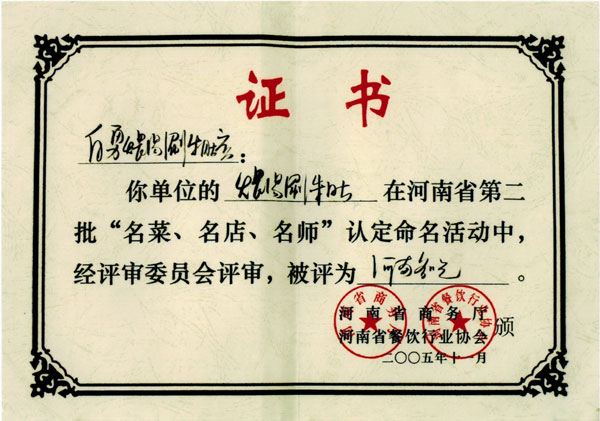 证书
白勇煨汤涮牛肚店：
你单位的 煨汤涮牛肚 在河南省第二
批“名菜、名店、名师”认定命名活动中，
经评审委员会评审，被评为 河南名吃 。
河南省商务厅
河南省餐饮行业协会 颁
二〇〇五年十一月
河南省商务厅
河南省餐饮行业协会